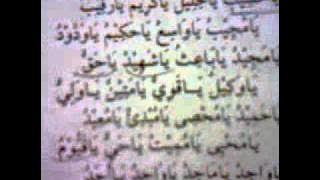 يَاجَلِيلُ يَاكَرِيمُ يَارَقِيبُ
يَامُجِيبُ يَاوَاسِعُ يَاحَكِيمُ يَاوَدُودُ
يَامَجِيدُ يَابَاعِثُ يَاشَهِيدُ يَاحَقُّ
يَاوَكِيلُ يَاقَوِيُّ يَامَتِينُ يَاوَلِيُّ
يَاحَمِيدُ يَامُحْصِى يَامُبْدِئُ يَامُعِيدُ
يَامُحْيِى يَامُمِيتُ يَاحَيُّ يَاقَيُّومُ
يَاوَاجِدُ يَامَاجِدُ يَاوَاحِدُ يَااَحَدُ